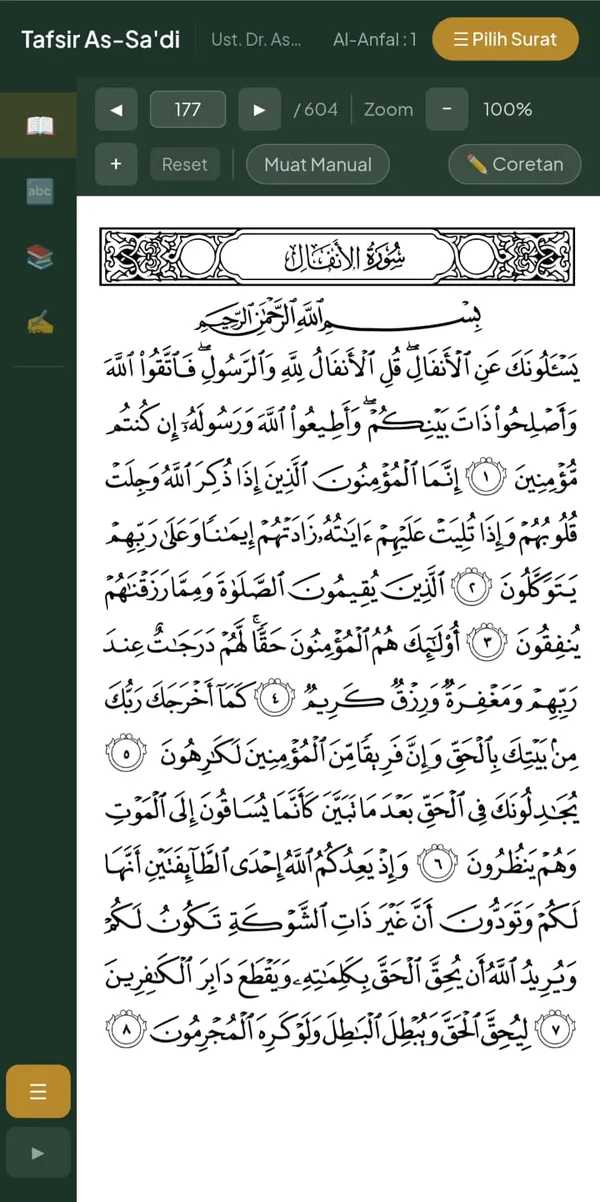 Tafsir As-Sa'di
Ust. Dr. As...
Al-Anfal : 1
☰ Pilih Surat
◀ 177 ▶ / 604 Zoom − 100%
+ Reset Muat Manual ✏️ Coretan
abc
سُورَةُ الأَنفَالِ
بِسْمِ ٱللَّهِ ٱلرَّحْمَٰنِ ٱلرَّحِيمِ
يَسْـَٔلُونَكَ عَنِ ٱلْأَنفَالِ ۖ قُلِ ٱلْأَنفَالُ لِلَّهِ وَٱلرَّسُولِ ۖ فَٱتَّقُوا۟ ٱللَّهَ
وَأَصْلِحُوا۟ ذَاتَ بَيْنِكُمْ ۖ وَأَطِيعُوا۟ ٱللَّهَ وَرَسُولَهُۥٓ إِن كُنتُم
مُّؤْمِنِينَ ١ إِنَّمَا ٱلْمُؤْمِنُونَ ٱلَّذِينَ إِذَا ذُكِرَ ٱللَّهُ وَجِلَتْ
قُلُوبُهُمْ وَإِذَا تُلِيَتْ عَلَيْهِمْ ءَايَٰتُهُۥ زَادَتْهُمْ إِيمَٰنًا وَعَلَىٰ رَبِّهِمْ
يَتَوَكَّلُونَ ٢ ٱلَّذِينَ يُقِيمُونَ ٱلصَّلَوٰةَ وَمِمَّا رَزَقْنَٰهُمْ
يُنفِقُونَ ٣ أُو۟لَٰٓئِكَ هُمُ ٱلْمُؤْمِنُونَ حَقًّا ۚ لَّهُمْ دَرَجَٰتٌ عِندَ
رَبِّهِمْ وَمَغْفِرَةٌ وَرِزْقٌ كَرِيمٌ ٤ كَمَآ أَخْرَجَكَ رَبُّكَ
مِنۢ بَيْتِكَ بِٱلْحَقِّ وَإِنَّ فَرِيقًا مِّنَ ٱلْمُؤْمِنِينَ لَكَٰرِهُونَ ٥
يُجَٰدِلُونَكَ فِى ٱلْحَقِّ بَعْدَ مَا تَبَيَّنَ كَأَنَّمَا يُسَاقُونَ إِلَى ٱلْمَوْتِ
وَهُمْ يَنظُرُونَ ٦ وَإِذْ يَعِدُكُمُ ٱللَّهُ إِحْدَى ٱلطَّآئِفَتَيْنِ أَنَّهَا
لَكُمْ وَتَوَدُّونَ أَنَّ غَيْرَ ذَاتِ ٱلشَّوْكَةِ تَكُونُ لَكُمْ
وَيُرِيدُ ٱللَّهُ أَن يُحِقَّ ٱلْحَقَّ بِكَلِمَٰتِهِۦ وَيَقْطَعَ دَابِرَ ٱلْكَٰفِرِينَ
٧ لِيُحِقَّ ٱلْحَقَّ وَيُبْطِلَ ٱلْبَٰطِلَ وَلَوْ كَرِهَ ٱلْمُجْرِمُونَ ٨
☰
▶